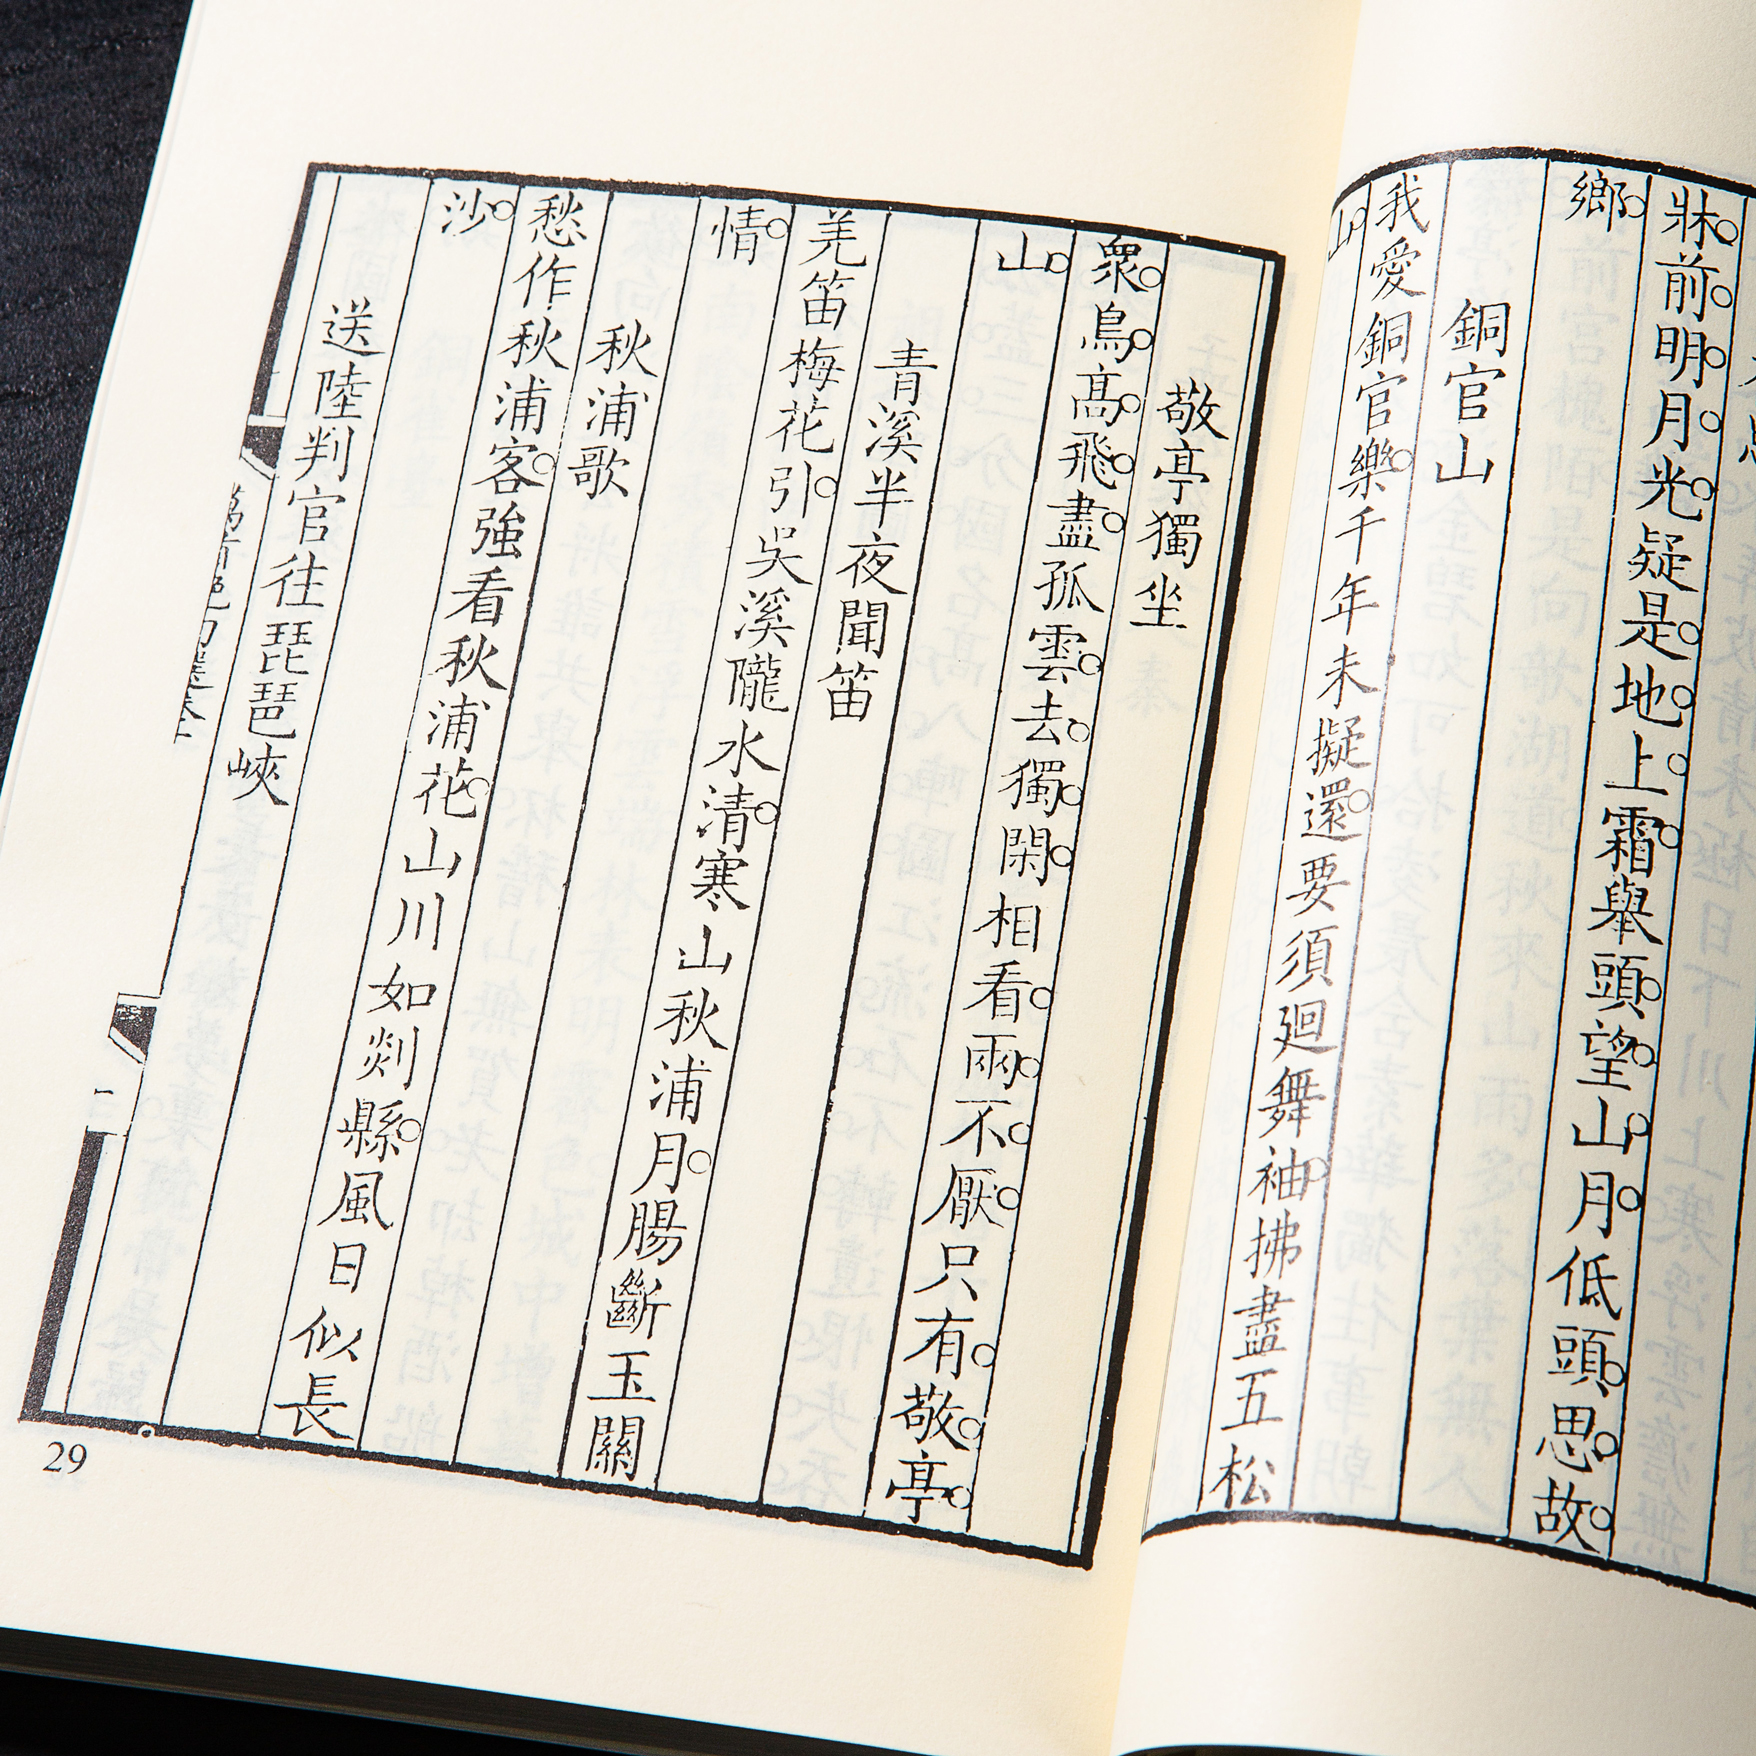 牀前明月光疑是地上霜舉頭望山月低頭思故
鄉
銅官山
我愛銅官樂千年未擬還要須廻舞袖拂盡五松
山
敬亭獨坐
衆鳥高飛盡孤雲去獨閑相看兩不厭只有敬亭
山
青溪半夜聞笛
羌笛梅花引吳溪隴水清寒山秋浦月腸斷玉關
情
秋浦歌
愁作秋浦客強看秋浦花山川如剡縣風日似長
沙
送陸判官往琵琶峽
29